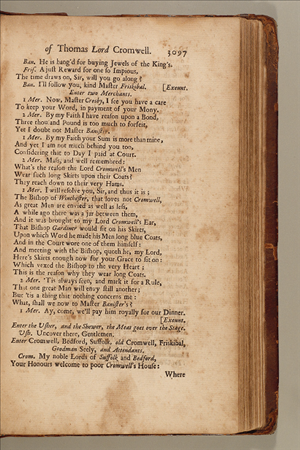 of Thomas Lord Cromwell. 3097
Ban. He is hang'd for buying Jewels of the King's.
Fris. A just Reward for one so impious,
The time draws on, Sir, will you go along?
Ban. I'll follow you, kind Master Friskibal. [Exeunt.
Enter two Merchants.
1 Mer. Now, Master Crosby, I see you have a care
To keep your Word, in payment of your Mony.
2 Mer. By my Faith I have reason upon a Bond,
Three thousand Pound is too much to forfeit,
Yet I doubt not Master Banister.
1 Mer. By my Faith your Sum is more than mine,
And yet I am not much behind you too,
Considering that to Day I paid at Court.
2 Mer. Mass, and well remembred:
What's the reason the Lord Cromwell's Men
Wear such long Skirts upon their Coats?
They reach down to their very Hams.
1 Mer. I will resolve you, Sir, and thus it is;
The Bishop of Winchester, that loves not Cromwell,
As great Men are envied as well as less,
A while ago there was a jar between them,
And it was brought to my Lord Cromwell's Ear,
That Bishop Gardiner would sit on his Skirts,
Upon which Word he made his Men long blue Coats,
And in the Court wore one of them himself:
And meeting with the Bishop, quoth he, my Lord,
Here's Skirts enough now for your Grace to sit on:
Which vexed the Bishop to the very Heart;
This is the reason why they wear long Coats.
2 Mer. 'Tis always seen, and mark it for a Rule,
That one great Man will envy still another;
But 'tis a thing that nothing concerns me:
What, shall we now to Master Banister's?
1 Mer. Ay, come, we'll pay him royally for our Dinner.
[Exeunt.
Enter the Usher, and the Shewer, the Meat goes over the Stage.
Ush. Uncover there, Gentlemen.
Enter Cromwell, Bedford, Suffolk, old Cromwell, Friskibal,
Goodman Seely, and Attendants.
Crom. My noble Lords of Suffolk and Bedford,
Your Honours welcome to poor Cromwell's House:
Where